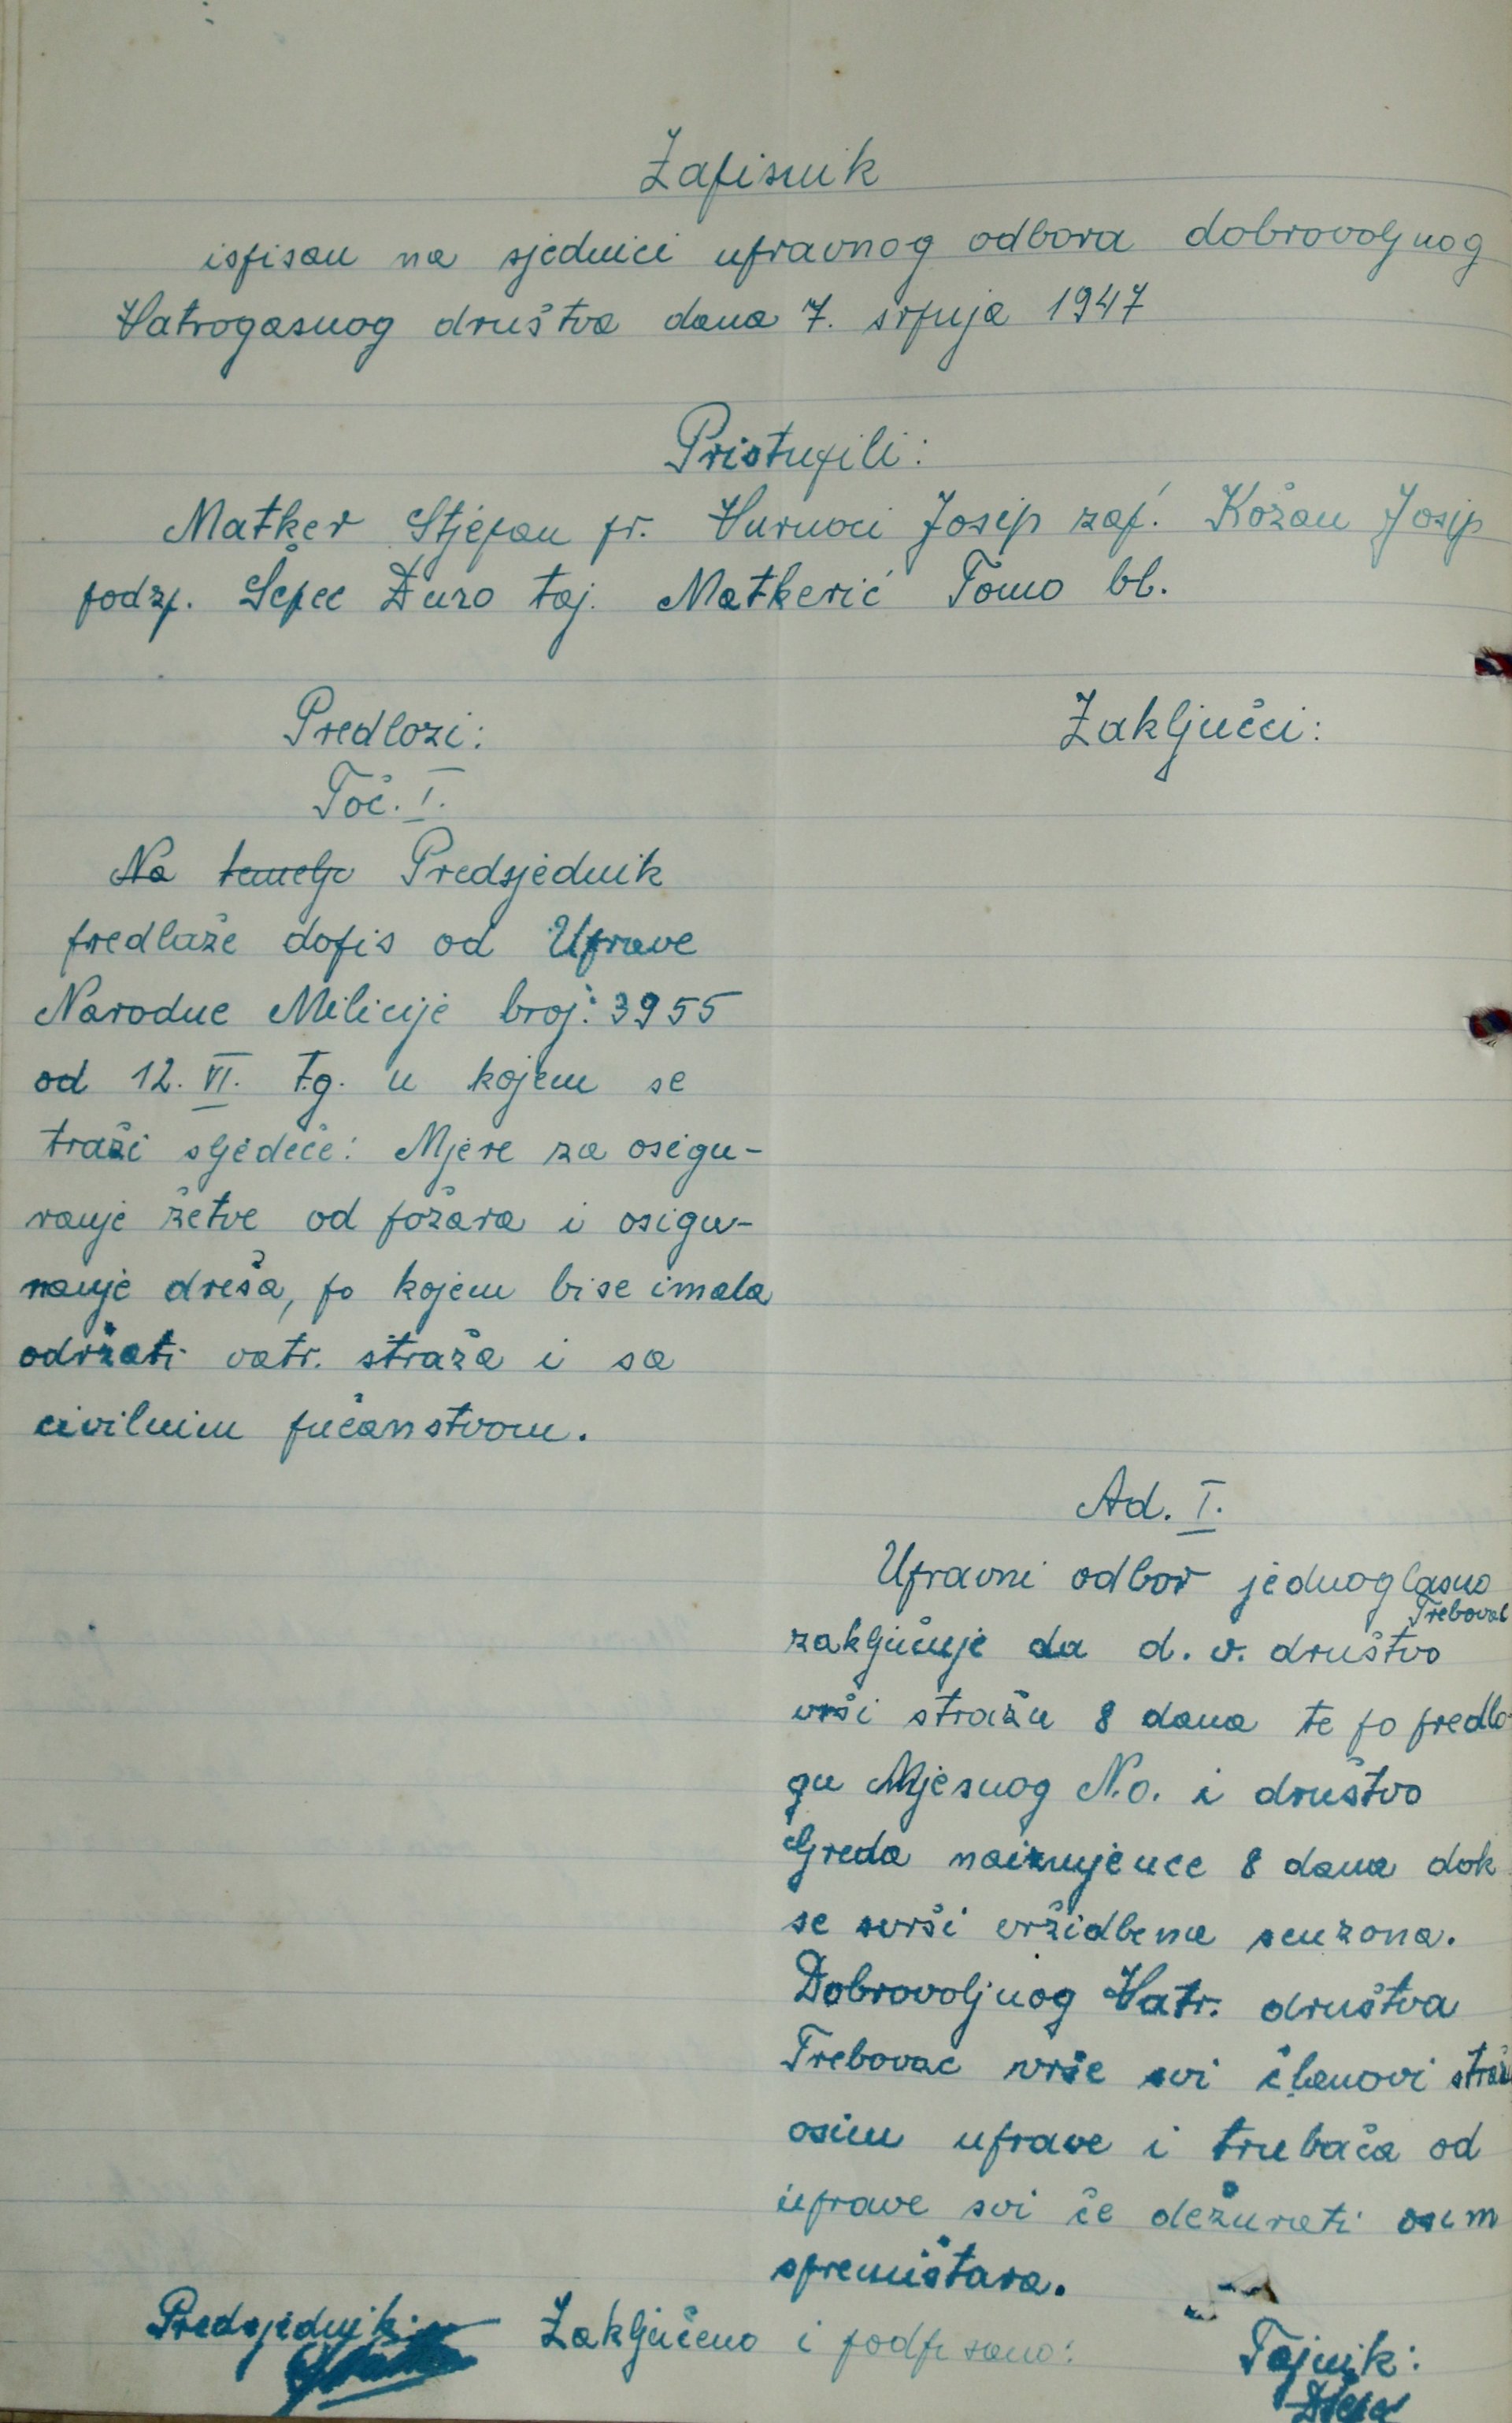 Zapisnik
ispisan na sjednici upravnog odbora dobrovoljnog
Vatrogasnog društva dana 7. srpnja 1947
Pristupili:
Matker Stjepan pr. Vurnoci Josip zap. Kožan Josip
podzp. Šepec Đuro taj. Matkerić Tomo bl.
Predlozi:
Toč. I.
Na temelju Predsjednik
predlaže dopis od Uprave
Narodne Milicije broj: 3955
od 12. VI. t.g. u kojem se
traži sljedeće: Mjere za osigu-
ranje žetve od požara i osigu-
ranje dreša, po kojem bi se imala
održati vatr. straža i sa
civilnim pučanstvom.
Zaključci:
Ad. I.
Upravni odbor jednoglasno
Trebovac
zaključuje da d. v. društvo
vrši stražu 8 dana te po predlo-
gu Mjesnog N.o. i društvo
Greda naizmjence 8 dana dok
se svrši vršidbena senzona.
Dobrovoljnog Vatr. društva
Trebovac vrše svi članovi
osim uprave i trubača od
uprave svi će dežurati osim
spremištara.
Predsjednik: Zaključeno i podpisano: Tajnik: